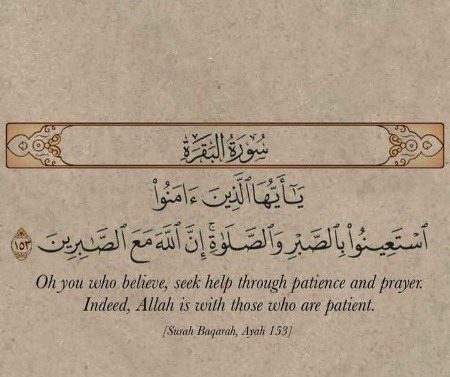 سُورَةُ البَقَرَةِ
يَـٰٓأَيُّهَا ٱلَّذِينَ ءَامَنُوا۟
ٱسْتَعِينُوا۟ بِٱلصَّبْرِ وَٱلصَّلَوٰةِ ۚ إِنَّ ٱللَّهَ مَعَ ٱلصَّـٰبِرِينَ ١٥٣
Oh you who believe, seek help through patience and prayer.
Indeed, Allah is with those who are patient.
[Surah Baqarah, Ayah 153]